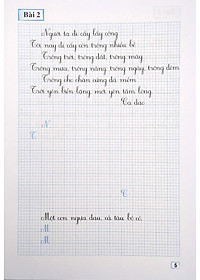 Bài 2
Người ta đi cấy lấy công
Tôi nay đi cấy còn trông nhiều bề
Trông trời, trông đất, trông mây
Trông mưa, trông nắng, trông ngày, trông đêm
Trông cho chân cứng đá mềm
Trời yên biển lặng, mới yên tấm lòng.
Ca dao
N
T
C
Một con ngựa đau, cả tàu bỏ cỏ.
M
M
5